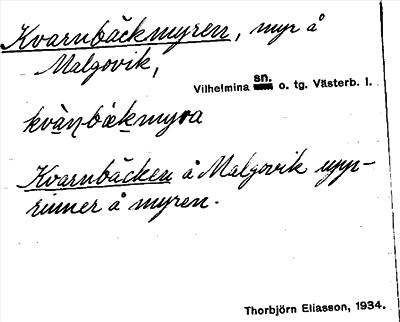 Kvarnbäckmyren, myr å
Malgovik,
Vilhelmina sn. o. tg. Västerb. l.
kvànbækmyra
Kvarnbäcken å Malgovik upp-
rinner å myren.
Thorbjörn Eliasson, 1934.